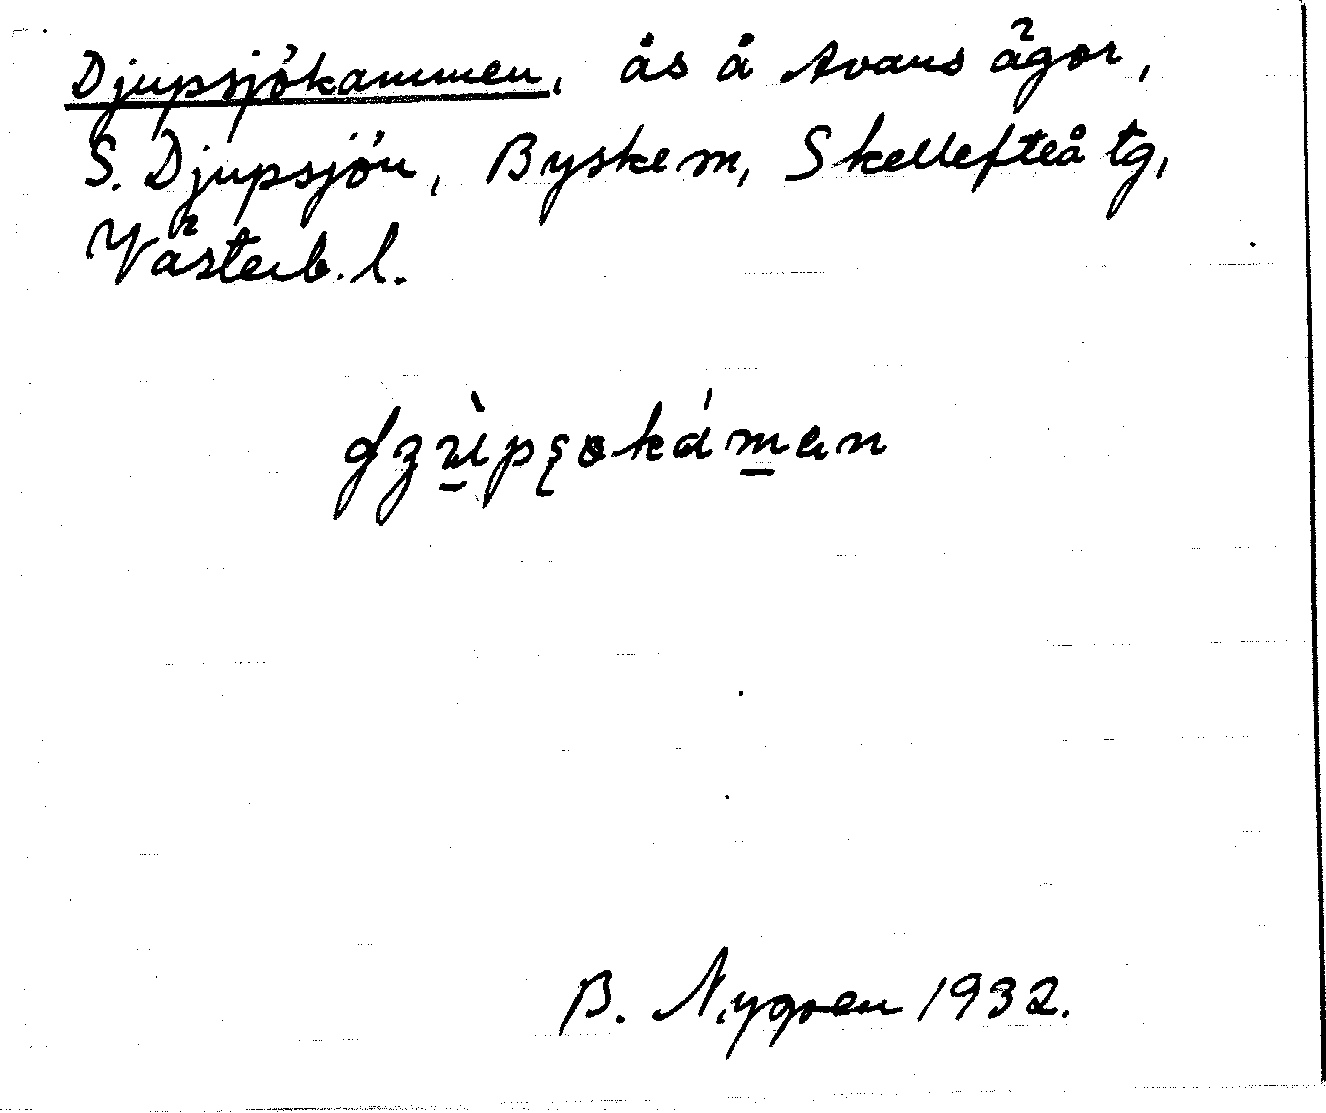 Djupsjökammen, ås å Avans ägor,
S. Djupsjön, Byskem, Skellefteå tg,
Västerb. l.
B. Nygren 1932.